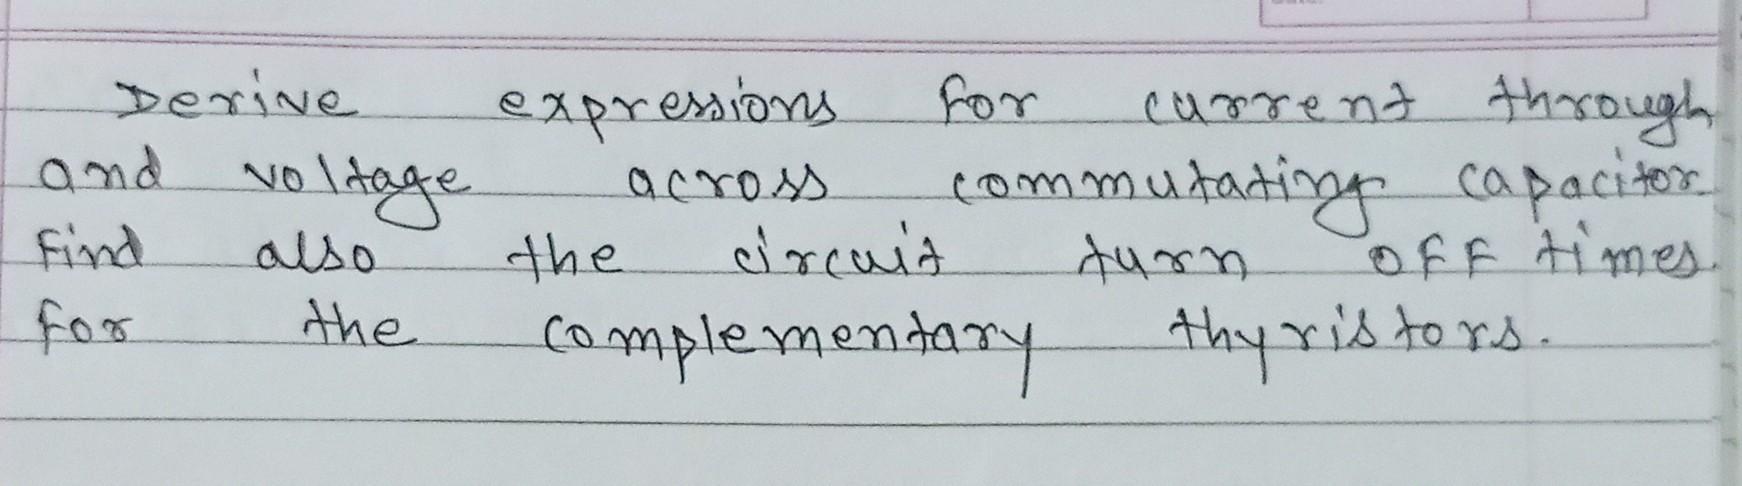 Derive expressions for current through
and voltage across commutating capacitor
Find also the circuit turn OFF times.
for the complementary thyristors.